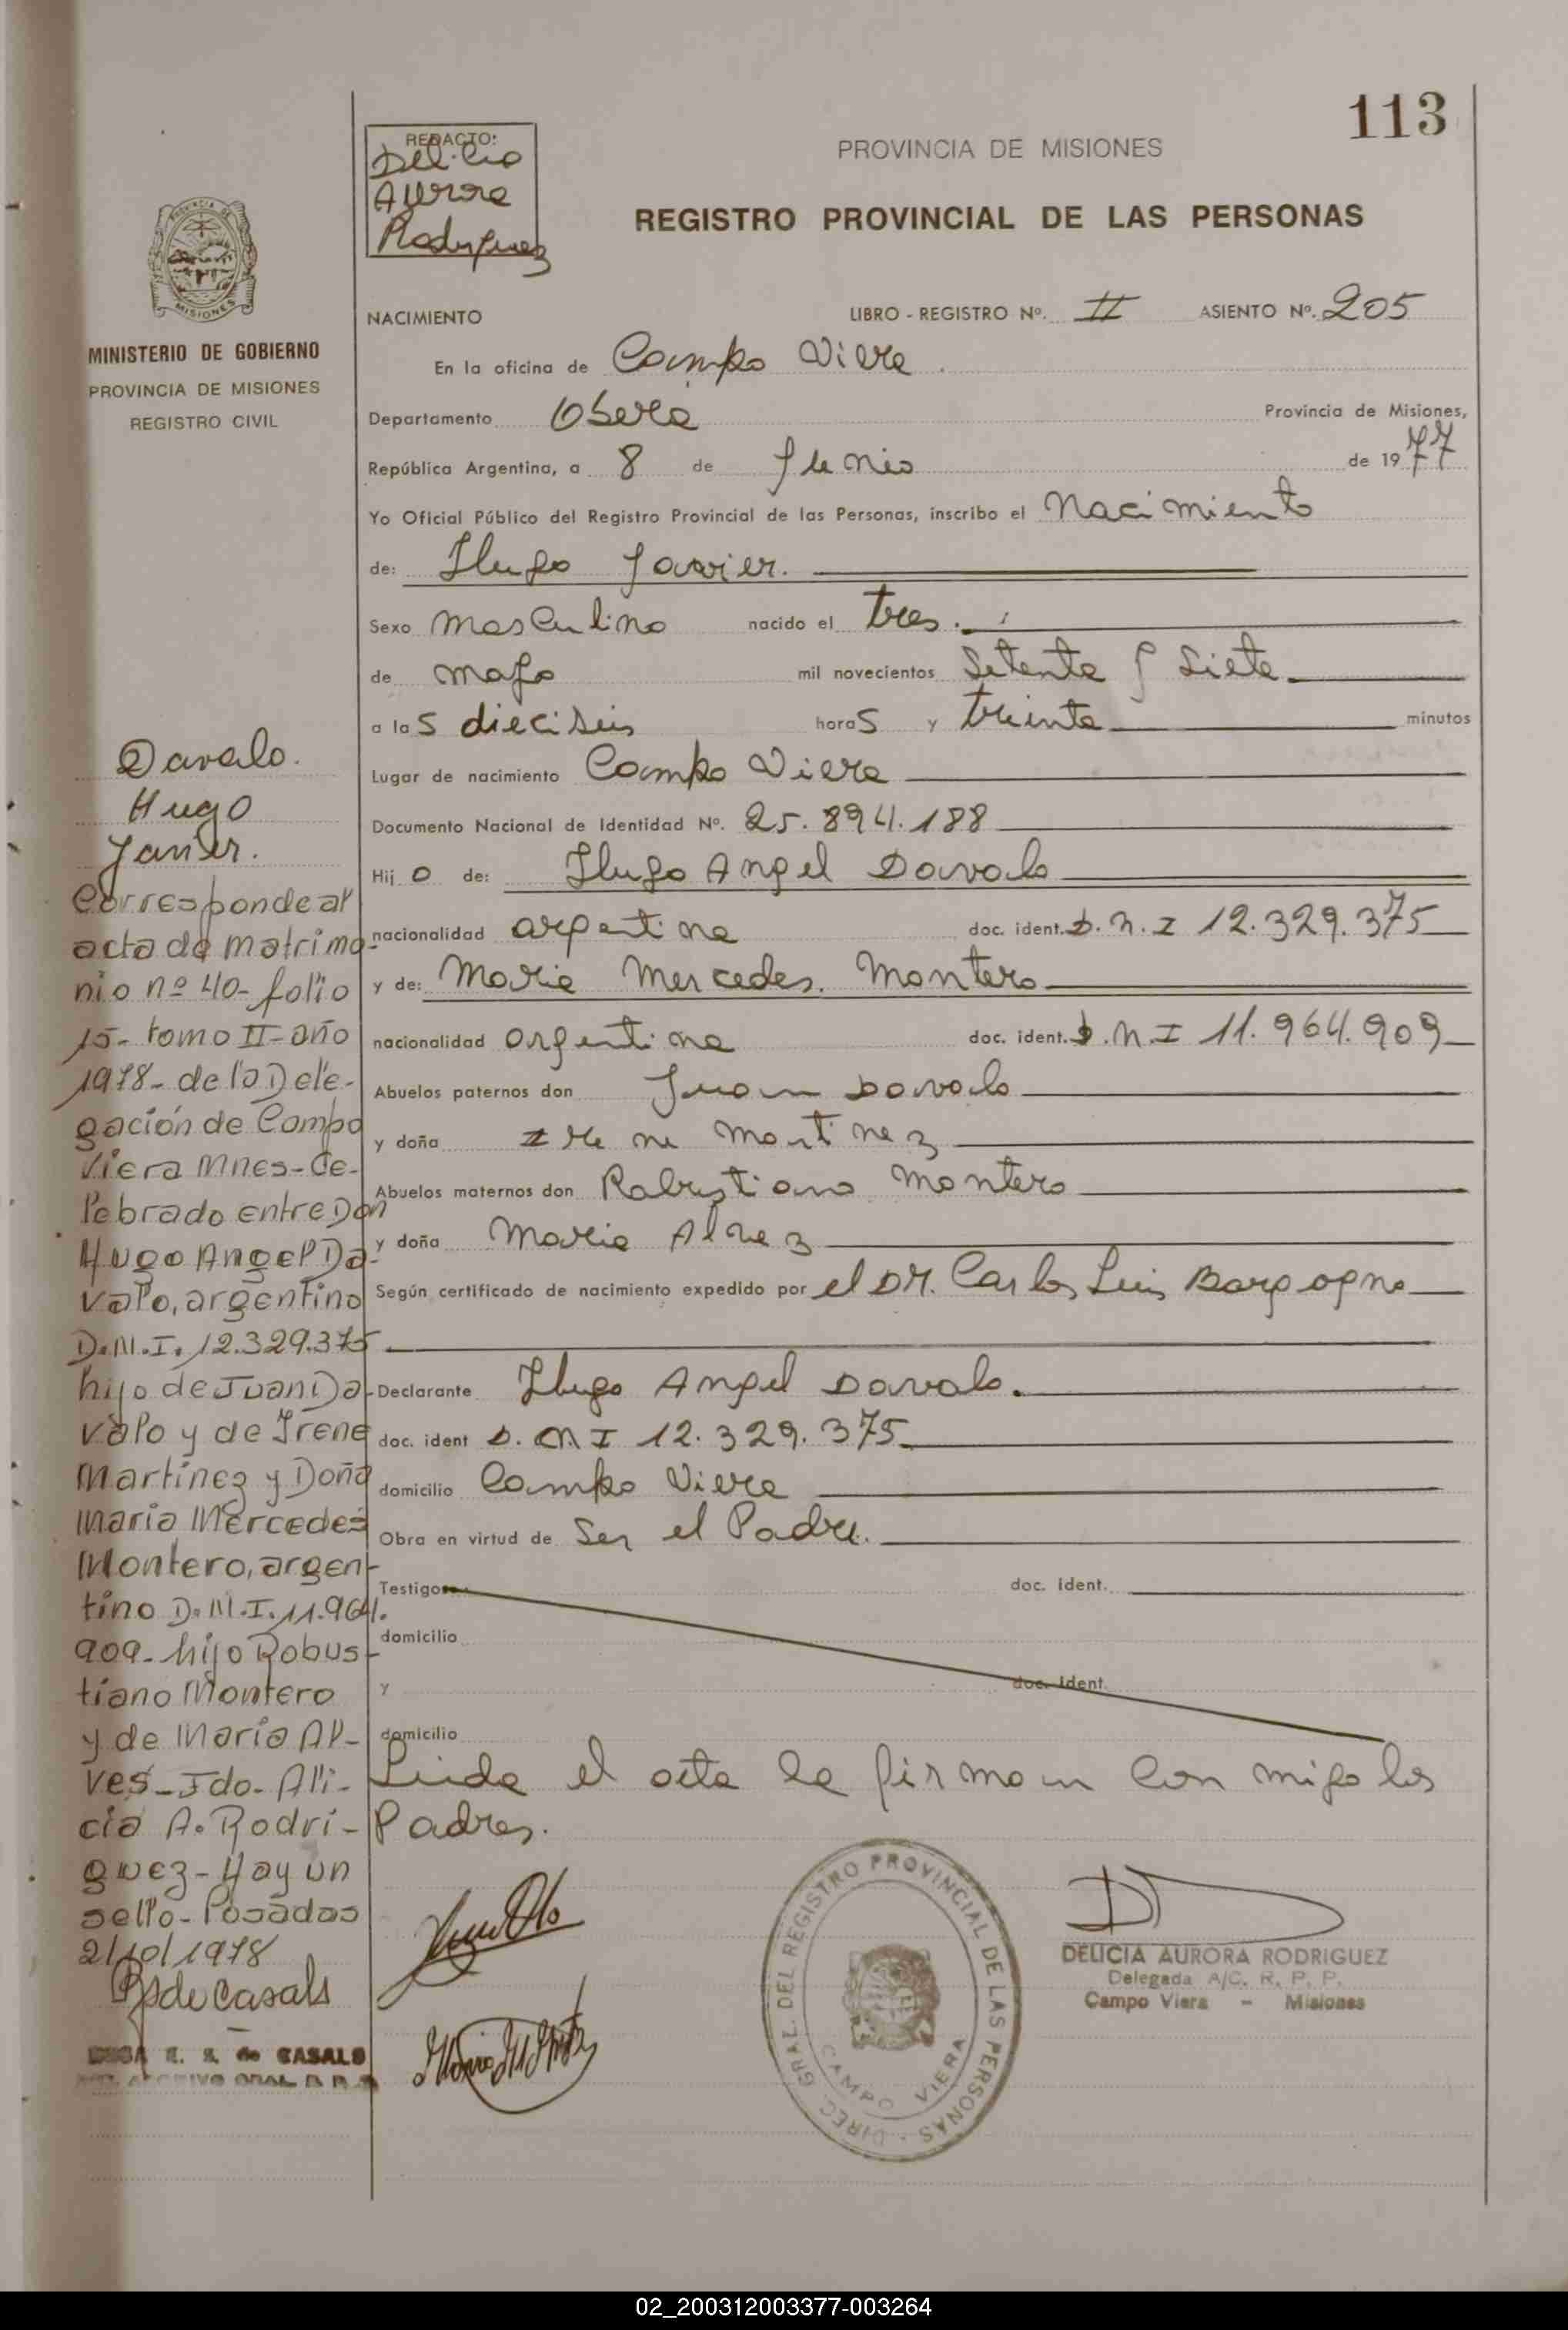 113
REDACTO:
Delicia
Aurora
Rodriguez
PROVINCIA DE MISIONES
REGISTRO PROVINCIAL DE LAS PERSONAS
PROVINCIA DE MISIONES
MINISTERIO DE GOBIERNO
PROVINCIA DE MISIONES
REGISTRO CIVIL
NACIMIENTO LIBRO - REGISTRO Nº. II ASIENTO Nº. 205
En la oficina de Campo Viera
Departamento Oberá Provincia de Misiones,
República Argentina, a 8 de Junio de 1977
Yo Oficial Público del Registro Provincial de las Personas, inscribo el Nacimiento
de: Hugo Javier.
Sexo masculino nacido el tres.
de mayo mil novecientos setenta y siete
a las dieciseis horas y treinta minutos
Lugar de nacimiento Campo Viera
Documento Nacional de Identidad Nº. 25.894.188
Hijo de: Hugo Angel Davalo
nacionalidad argentina doc. ident. D.N.I 12.329.375
y de: Maria Mercedes Montero
nacionalidad argentina doc. ident. D.N.I 11.964.909
Abuelos paternos don Juan Davalo
y doña Irene Martinez
Abuelos maternos don Robustiano Montero
y doña Maria Alvez
Según certificado de nacimiento expedido por el Dr. Carlos Luis
Declarante Hugo Angel Davalo.
doc. ident D.N.I 12.329.375
domicilio Campo Viera
Obra en virtud de ser el Padre.
Testigos doc. ident.
domicilio
y doc. ident.
domicilio
Leida el acta la firman con migo los
Padres.
Davalo.
Hugo
Javier.
Corresponde al
acta de matrimo-
nio nº 40- folio
15- tomo II- año
1978- de la Dele-
gación de Campo
Viera Mnes- Ce-
lebrado entre Don
Hugo Angel Da-
valo, argentino
D.N.I. 12.329.375
hijo de Juan Da-
valo y de Irene
Martinez y Doña
Maria Mercedes
Montero, argen-
tino D.N.I. 11.964.
909- hijo Robus-
tiano Montero
y de Maria Al-
ves- Fdo- Ali-
cia A. Rodri-
guez- Hay un
sello- Posadas
2/10/1978
de Casals
R. S. de CASALS
ARCHIVO GRAL.
DIREC. GRAL. DEL REGISTRO PROVINCIAL DE LAS PERSONAS
CAMPO VIERA
DELICIA AURORA RODRIGUEZ
Delegada A/C. R. P. P.
Campo Viera - Misiones
02_200312003377-003264